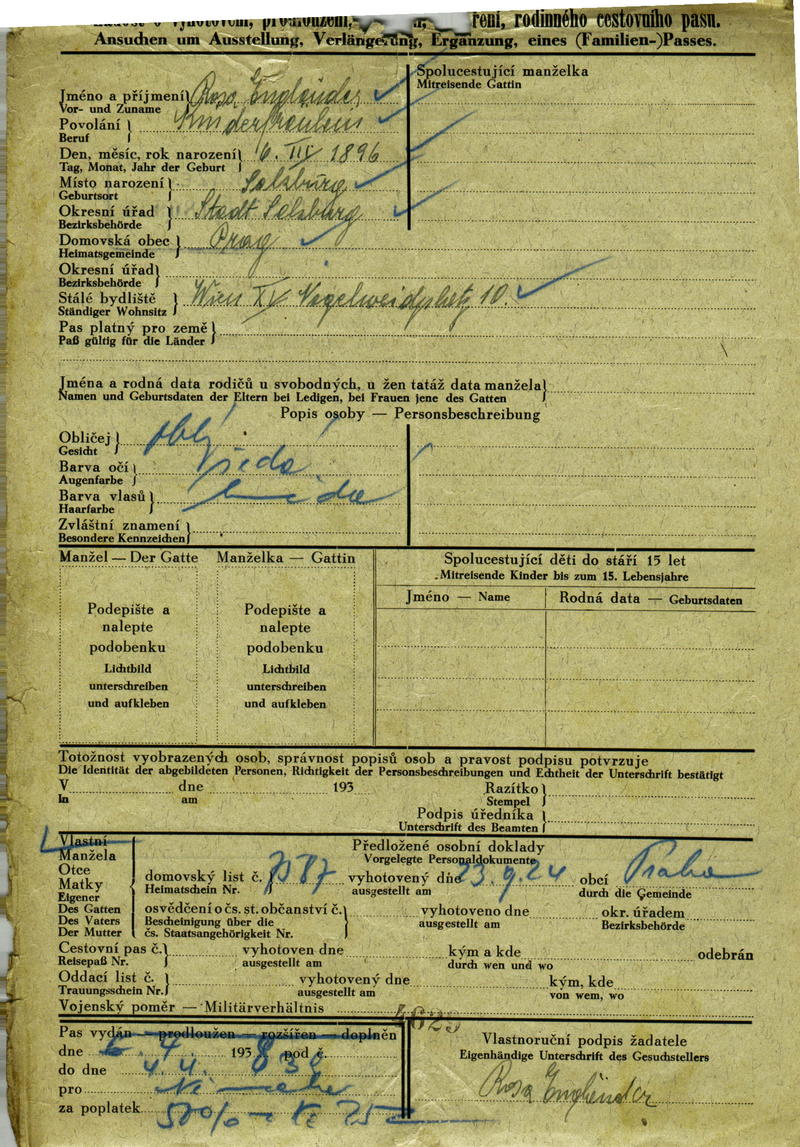 rodinného cestovního pasu.
Ansuchen um Ausstellung, Verlängerung, Ergänzung, eines (Familien-)Passes.
Jméno a příjmení Rosa Engländer
Vor- und Zuname
Spolucestující manželka
Mitreisende Gattin
Povolání
Beruf
Den, měsíc, rok narození 6. III 1896
Tag, Monat, Jahr der Geburt
Místo narození Salzburg
Geburtsort
Okresní úřad Stadt Salzburg
Bezirksbehörde
Domovská obec Prag
Heimatsgemeinde
Okresní úřad
Bezirksbehörde
Stálé bydliště Wien XV Vogelweidplatz 10.
Ständiger Wohnsitz
Pas platný pro země
Paß gültig für die Länder
Jména a rodná data rodičů u svobodných, u žen tatáž data manžela
Namen und Geburtsdaten der Eltern bei Ledigen, bei Frauen jene des Gatten
Popis osoby — Personsbeschreibung
Obličej obl
Gesicht
Barva očí
Augenfarbe
Barva vlasů
Haarfarbe
Zvláštní znamení
Besondere Kennzeichen
Manžel — Der Gatte
Manželka — Gattin
Podepište a
nalepte
podobenku
Lichtbild
unterschreiben
und aufkleben
Podepište a
nalepte
podobenku
Lichtbild
unterschreiben
und aufkleben
Spolucestující děti do stáří 15 let
Mitreisende Kinder bis zum 15. Lebensjahre
Jméno — Name
Rodná data — Geburtsdaten
Totožnost vyobrazených osob, správnost popisů osob a pravost podpisu potvrzuje
Die Identität der abgebildeten Personen, Richtigkeit der Personsbeschreibungen und Echtheit der Unterschrift bestätigt
V dne 193 Razítko
In am Stempel
Podpis úředníka
Unterschrift des Beamten
Vlastní
Manžela
Otce
Matky
Eigener
Des Gatten
Des Vaters
Der Mutter
Předložené osobní doklady
Vorgelegte Personaldokumente
domovský list č. vyhotovený dne 23.9.24 obcí Praha
Heimatschein Nr. ausgestellt am durch die Gemeinde
osvědčení o čs. st. občanství č. vyhotoveno dne okr. úřadem
Bescheinigung über die ausgestellt am Bezirksbehörde
čs. Staatsangehörigkeit Nr.
Cestovní pas č. vyhotoven dne kým a kde odebrán
Reisepaß Nr. ausgestellt am durch wen und wo
Oddací list č. vyhotovený dne kým, kde
Trauungsschein Nr. ausgestellt am von wem, wo
Vojenský poměr — Militärverhältnis
Pas vydán prodloužen rozšířen doplněn
dne 193 pod č.
do dne
pro
za poplatek
Vlastnoruční podpis žadatele
Eigenhändige Unterschrift des Gesuchstellers
Rosa Engländer